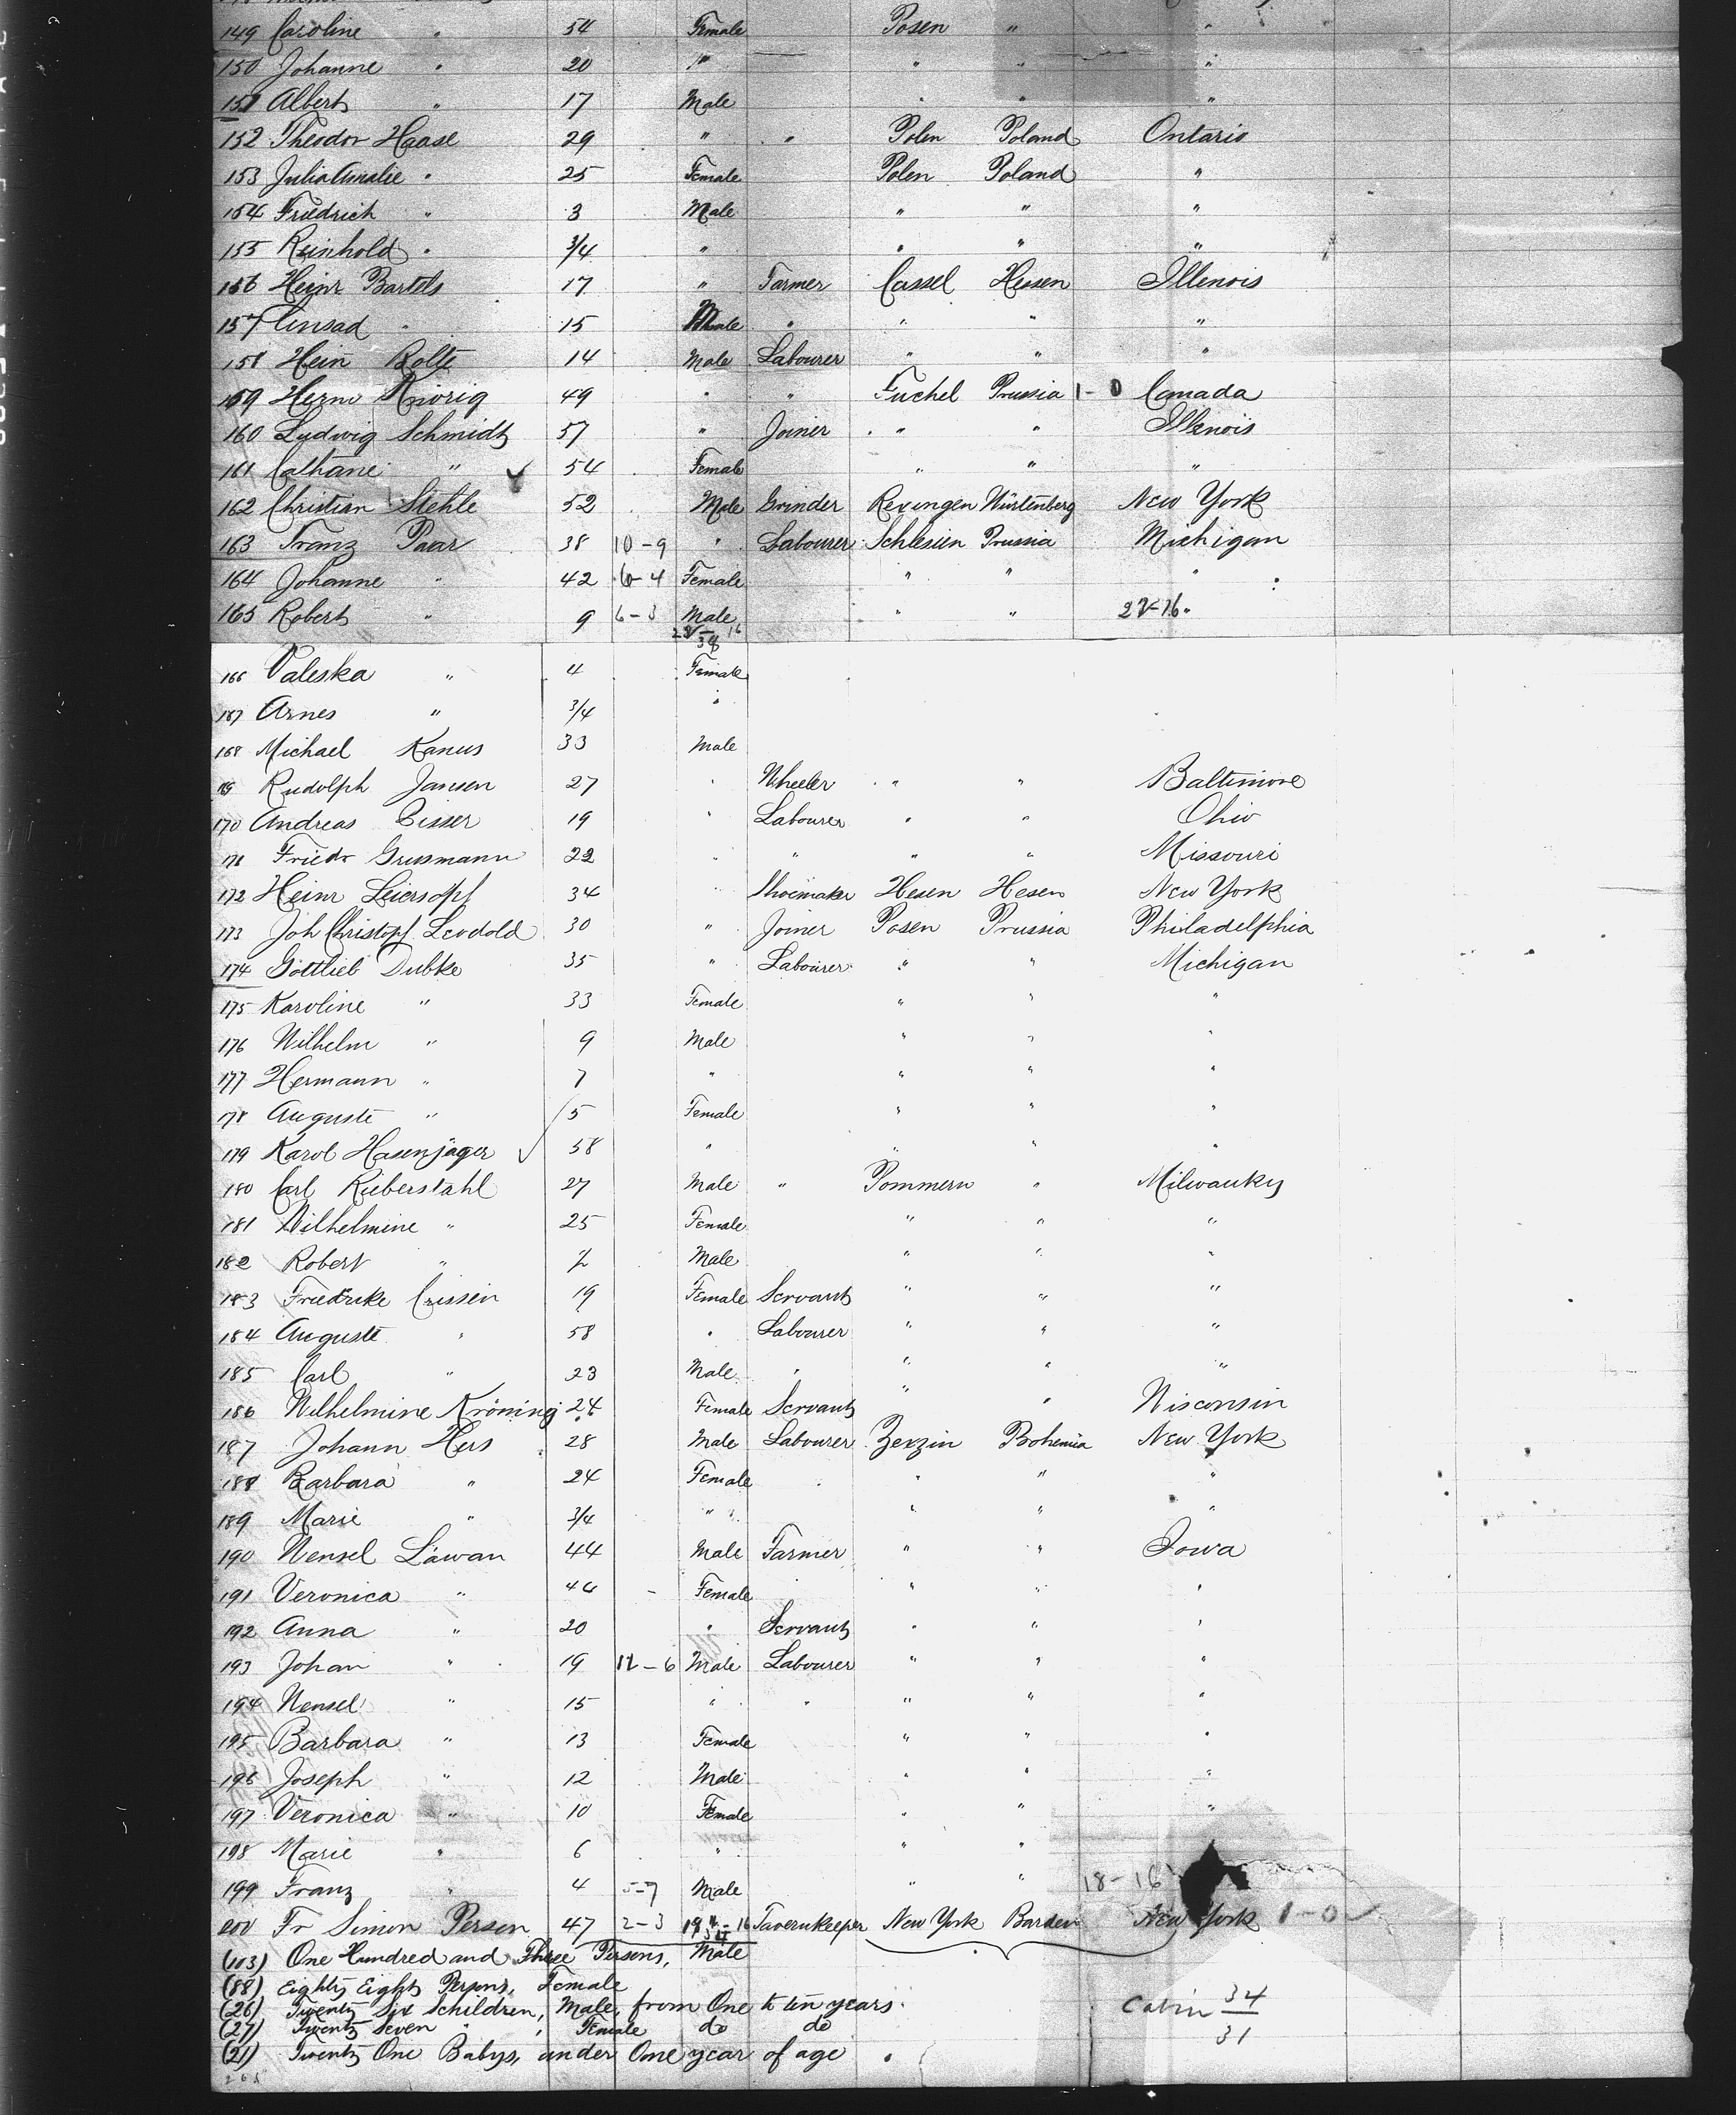 149 Caroline " 54 Female Posen " "
150 Johanne " 20 " " " "
151 Albert " 17 Male " " "
152 Theodor Haase 29 " " Polen Poland Ontario
153 Julia Amalie " 25 Female Polen Poland "
154 Friedrich " 3 Male " " "
155 Reinhold " 3/4 " " " "
156 Heinr Bartels 17 " Farmer Cassel Hessen Illenois
157 Conrad " 15 Male " " " "
158 Hein Bolte 14 Male Labourer " " "
159 Herm 49 " " Tuchel Prussia 1-0 Canada
160 Ludwig Schmidt 57 " Joiner " " Illenois
161 Cathane " 54 Female " " "
162 Christian Stehle 52 Male Grinder Würtenberg New York
163 Franz Paar 38 10-9 " Labourer Schlesien Prussia Michigan
164 Johanne " 42 6-4 Female " " "
165 Robert " 9 6-3 Male " " 22-16
166 Valeska " 4 Female
167 Arnes " 3/4 "
168 Michael Kanus 33 Male
169 Rudolph Jansen 27 " Wheeler " " Baltimore
170 Andreas Eisser 19 " Labourer " " Ohio
171 Friedr Grussmann 22 " " " " Missouri
172 Heinr 34 " Shoemaker Hesen Hesen New York
173 Joh Christopf Leodold 30 " Joiner Posen Prussia Philadelphia
174 Gottlieb Dubke 35 " Labourer " " Michigan
175 Karoline " 33 Female " " "
176 Wilhelm " 9 Male " " "
177 Hermann " 7 " " " "
178 Auguste " 5 Female " " "
179 Karol Hasenjäger 58 " " " "
180 Carl Rieberstahl 27 Male " Pommern " Milwauky
181 Wilhelmine " 25 Female " " "
182 Robert " Male " " "
183 Friedrike Crissin 19 Female Servant " " "
184 Auguste " 58 " Labourer " " "
185 Carl " 23 Male " " " "
186 Wilhelmine Kröning 24 Female Servant " " Wisconsin
187 Johann Hers 28 Male Labourer Zerzin Bohemia New York
188 Barbara " 24 Female " " "
189 Marie " 3/4 " " " "
190 Wensel Lawan 44 Male Farmer " " Iowa
191 Veronica " 46 Female " " "
192 Anna " 20 " Servant " " "
193 Johan " 19 12-6 Male Labourer " " "
194 Wensel " 15 " " " " "
195 Barbara " 13 Female " " "
196 Joseph " 12 Male " " "
197 Veronica " 10 Female " " "
198 Marie " 6 " " "
199 Franz " 4 5-7 Male " " 18-16
200 Fr Simon Person 47 2-3 Tavernkeeper New York Barden New York 1-0
(103) One Hundred and Three Persons, Male
(88) Eighty Eight Persons, Female
(26) Twenty Six Schildren, Male, from One to ten years
(27) Twenty Seven " , Female do do
(21) Twenty One Babys, under One year of age
265
Cabin 34
31